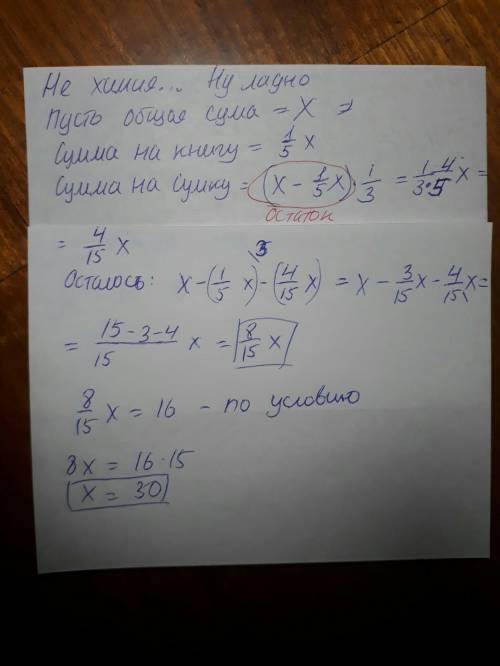 Не химия... Ну ладно
Пусть общая сума = X ⇒
Сумма на книгу = 1/5 x
Сумма на сумку = (x - 1/5 x) · 1/3 = 1·4/3·5 x =
остаток
= 4/15 x
Осталось: x - (1/5 x) - (4/15 x) = x - 3/15 x - 4/15 x =
= 15-3-4/15 x = 8/15 x
8/15 x = 16 - по условию
8x = 16·15
x = 30